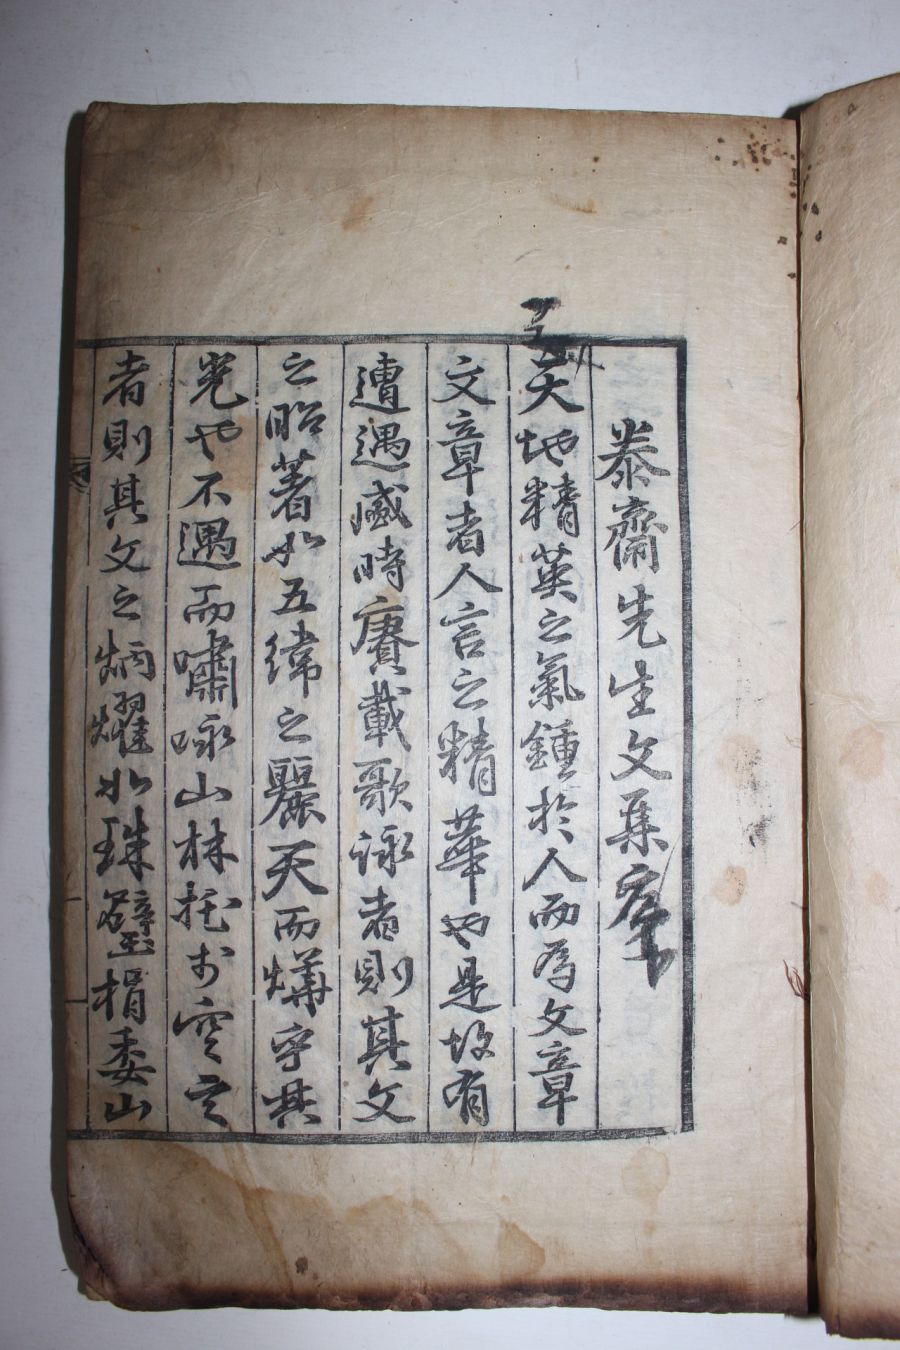 泰齋先生文集序
天地精英之氣鍾於人而爲文章
文章者人言之精華也是故有
遭遇盛時賡載歌詠者則其文
之昭著如五緯之麗天而燁乎其
光也不遇而嘯咏山林托於空言
者則其文之炳燿如珠璧捐委山